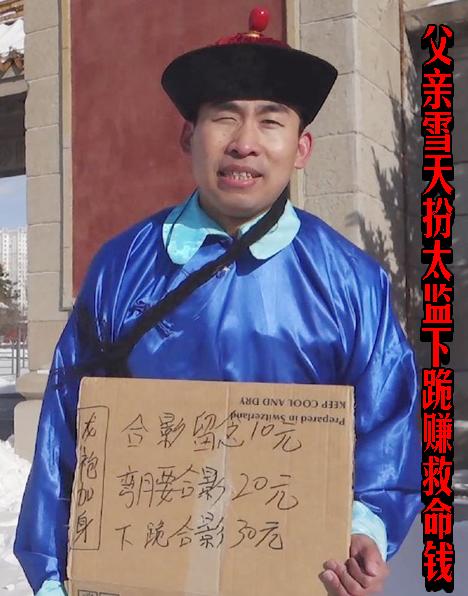 父亲雪天扮太监下跪赚救命钱
KEEP COOL AND DRY
Prepared in Switzerland
龙袍加身
合影留念10元
弯月要合影20元
下跪合影30元